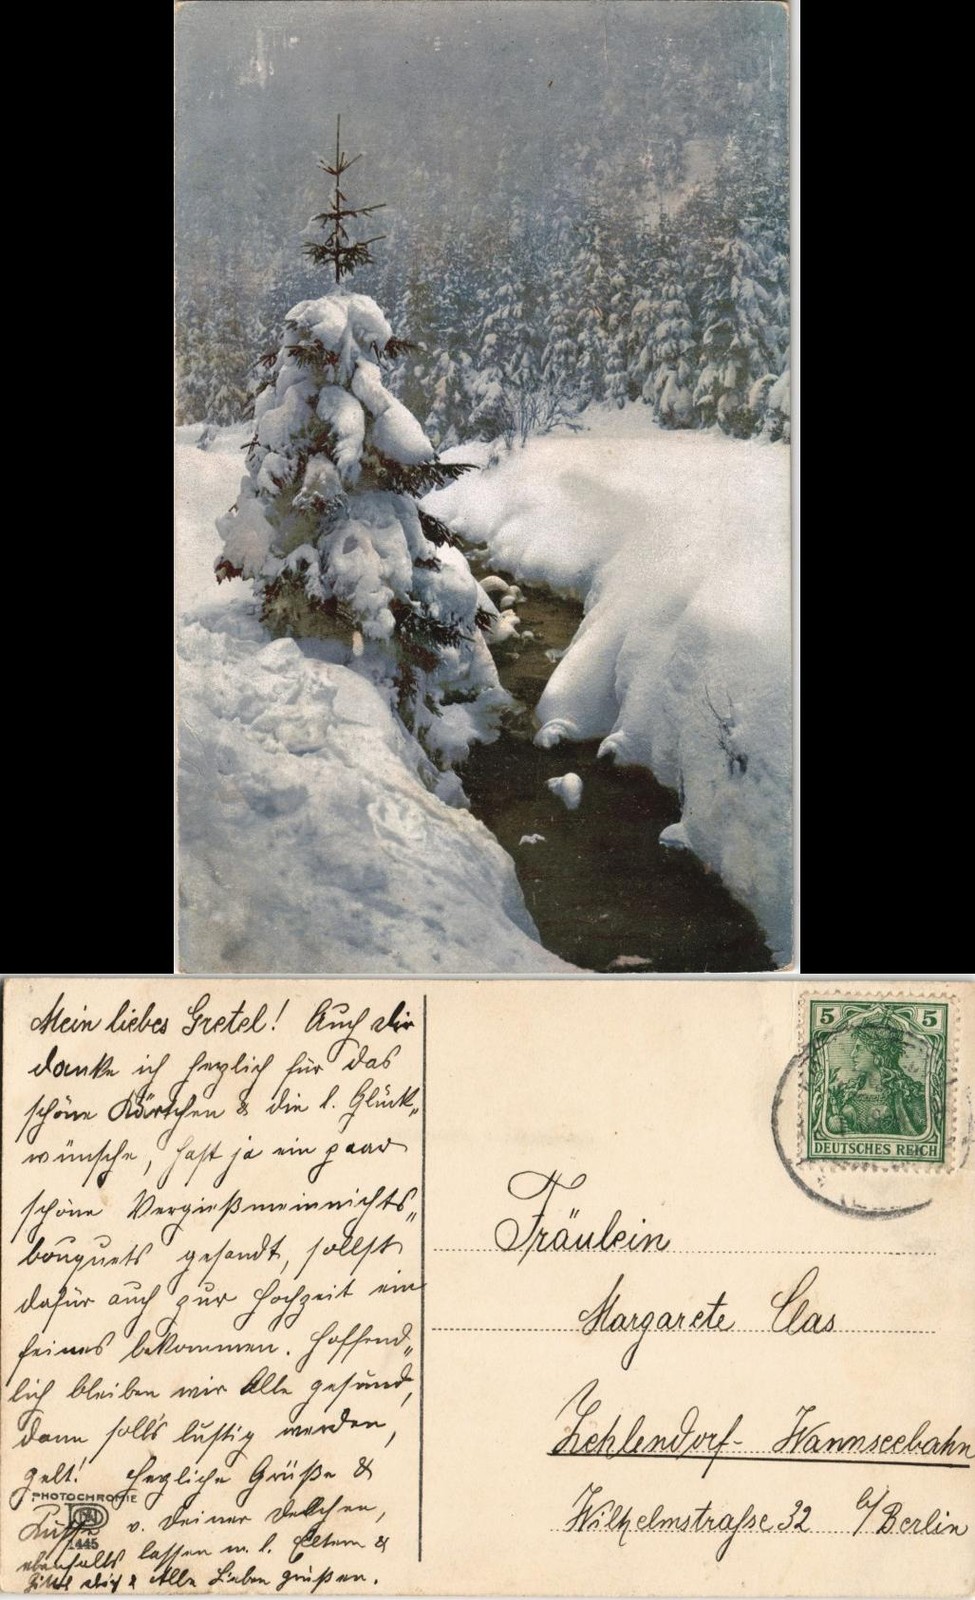 Mein liebes Gretel! Auch dir
danke ich herzlich für das
schöne Kärtchen & die l. Glück„
wünsche, hast ja ein paar
schöne Vergießmeinnichts„
bouquets gesandt, sollst
dafür auch zur Hochzeit ein
feines bekommen. Hoffend„
lich bleiben wir Alle gesund,
dann soll's lustig werden,
gelt! Herzliche Grüße &
Küsse v. Deiner
ebenfalls lassen m. l. Eltern &
dich & Alle Lieben grüßen.
PHOTOCHROMIE
1445
5 5
DEUTSCHES REICH
Fräulein
Margarete Clas
Zehlendorf- Wannseebahn
Wilhelmstraße 32 b/Berlin